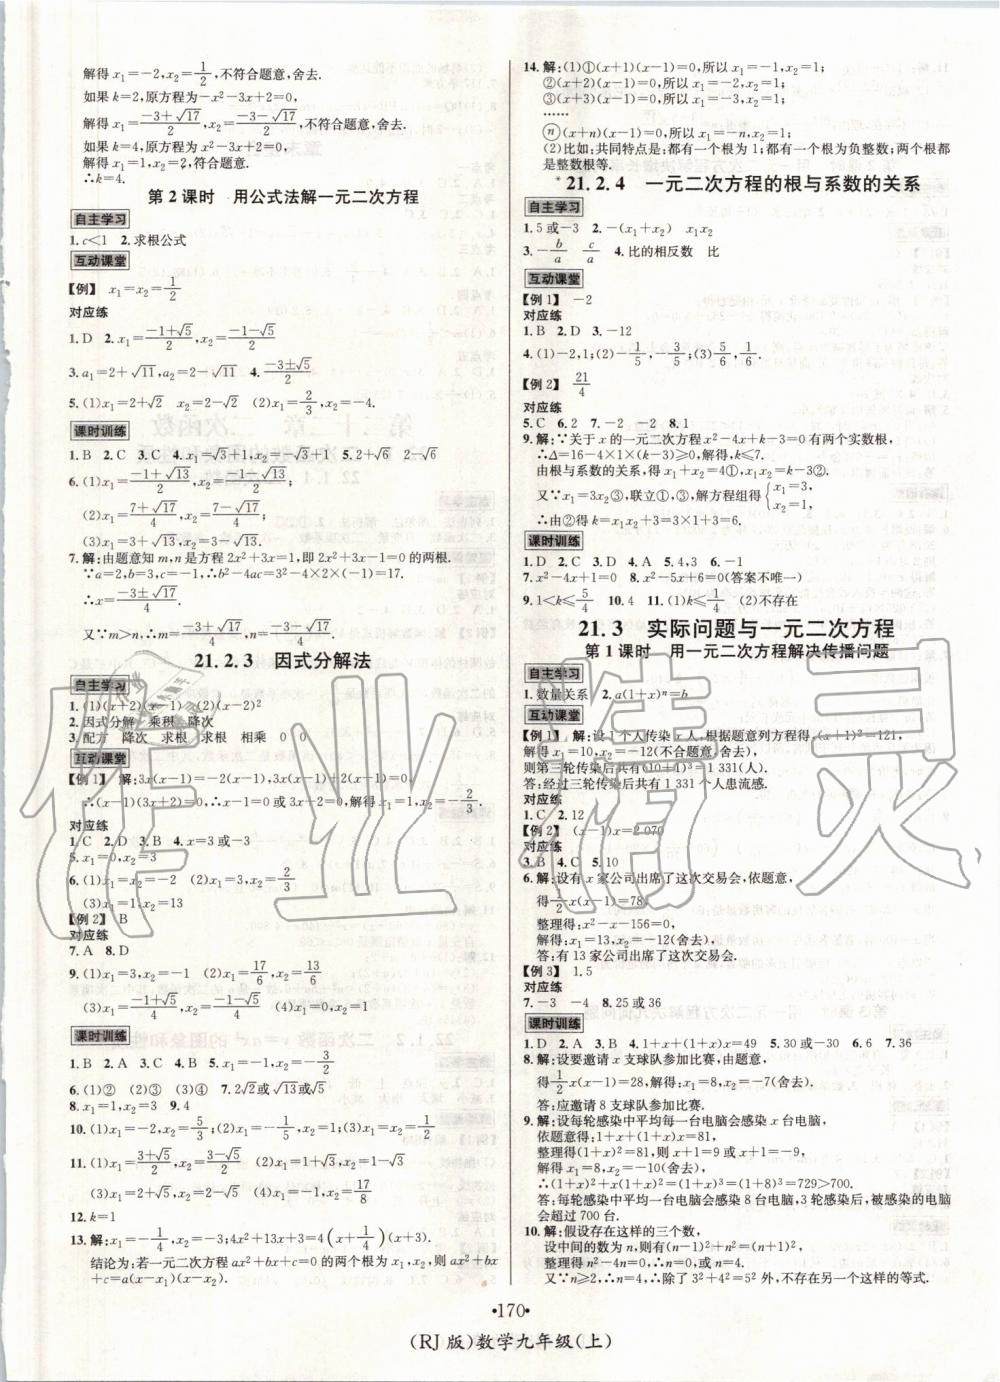 解得x₁=-2,x₂=1/2,不符合题意,舍去.
如果k=2,原方程为-x²-3x+2=0,
解得x₁=(-3+√17)/2,x₂=(-3-√17)/2,不符合题意,舍去.
如果k=4,原方程为x²-3x+2=0,
解得x₁=1,x₂=2,符合题意.
∴k=4.
第2课时 用公式法解一元二次方程
自主学习
1.c<1 2.求根公式
互动课堂
【例】 x₁=x₂=1/2
对应练
1.D 2.x₁=(-1+√5)/2,x₂=(-1-√5)/2
3.a₁=2+√11,a₂=2-√11 4.(-3±√5)/2
5.(1)x₁=2+√2 x₂=2-√2 (2)x₁=2/3,x₂=-4.
课时训练
1.B 2.C 3.C 4.x₁=x₂=1 5.2+√6 2-√6
6.(1)x₁=(-1+√13)/2,x₂=(-1-√13)/2
(2)x₁=(7+√17)/4,x₂=(7-√17)/4
(3)x₁=3+√17,x₂=3-√17.
7.解:由题意知m,n是方程2x²+3x=1,即2x²+3x-1=0的两根.
∵a=2,b=3,c=-1,∴b²-4ac=3²-4×2×(-1)=17.
∴x=(-3±√17)/4.
又∵m>n,∴m=(-3+√17)/4,n=(-3-√17)/4.
21.2.3 因式分解法
自主学习
1.(1)(x+2)(x-1) (2)(x-2)²
2.因式分解 乘积 降次
3.配方 降次 求根 求根 相乘 0 0
互动课堂
【例1】 解:3x(x-1)=-2(x-1),3x(x-1)+2(x-1)=0,
∴(x-1)(3x+2)=0,∴x-1=0或3x-2=0,解得x₁=1,x₂=-2/3.
对应练
1.C 2.D 3.B 4.x=3或-3
5.x₁=0,x₂=3.
6.(1)x₁=0,x₂=-2 (2)x₁=3,x₂=2/3
(3)x₁=1,x₂=13
【例2】 B
对应练
7.A 8.D
9.(1)x₁=3,x₂=-1 (2)x₁=17/6,x₂=13/6
(3)x₁=(-1+√5)/4,x₂=(-1-√5)/4 (4)x₁=0,x₂=1
课时训练
1.B 2.A 3.C 4.B 5.A
6.(2) (1) (3) (4) 7.2√2或√13或√5
8.x₁=1,x₂=3 9.4
10.(1)x₁=2,x₂=5/3 (2)x₁=-1/5,x₂=1 (3)x₁=2,x₂=4
11.(1)x₁=(-3+√3)/3,x₂=(-3-√3)/3 (2)x₁=5,x₂=-2
(3)x₁=2+√5,x₂=2-√5 (4)x₁=-1,x₂=17/8
12.k=1
13.解:x₁=-1/4,x₂=-3;4x²+13x+3=4(x+1/4)(x+3).
结论为:若一元二次方程ax²+bx+c=0的两个根为x₁,x₂,则ax²+bx
+c=a(x-x₁)(x-x₂).
14.解:(1)①(x+1)(x-1)=0,所以x₁=-1,x₂=1;
②(x+2)(x-1)=0,所以x₁=-2,x₂=1;
③(x+3)(x-1)=0,所以x₁=-3,x₂=1;
……
ⓝ(x+n)(x-1)=0,所以x₁=-n,x₂=1;
(2)比如:共同特点是:都有一个根为1;都有一个根为负整数;两个根都
是整数根等.
21.2.4 一元二次方程的根与系数的关系
自主学习
1.5或-3 2.-(x₁+x₂) x₁x₂
3.-b/a c/a 4.比的相反数 比
互动课堂
【例1】 -2
对应练
1.B 2.D 3.-12
4.(1)-2,1;(2)-1/5,-3/5;(3)5/6,1/6.
【例2】 21/4
对应练
5.C 6.2 7.-2 8.-2 -4
9.解:∵关于x的一元二次方程x²-4x+k-3=0有两个实数根,
∴Δ=16-4×1×(k-3)≥0,解得k≤7.
由根与系数的关系,得x₁+x₂=4①,x₁x₂=k-3②.
又∵x₁=3x₂③,联立①,③,解方程组得{x₁=3,
x₂=1,
∴由②得k=x₁x₂+3=3×1+3=6.
课时训练
1.D 2.C 3.D 4.A 5.4,3 6.-1
7.x²-4x+1=0 8.x²-5x+6=0(答案不唯一)
9.1<k≤5/4 10.4 11.(1)k≤1/4 (2)不存在
21.3 实际问题与一元二次方程
第1课时 用一元二次方程解决传播问题
自主学习
1.数量关系 2.a(1+x)ⁿ=b
互动课堂
【例1】 解:设1个人传染x人,根据题意列方程得,(x+1)²=121,
解得x₁=10,x₂=-12(不合题意,舍去)
则第三轮传染后共有(10+1)³=1 331(人).
答:经过三轮传染后共有1 331个人患流感.
对应练
1.C 2.12
【例2】 (x-1)x=2 070
对应练
3.B 4.C 5.10
6.解:设有x家公司出席了这次交易会,依题意,
得1/2 x(x-1)=78,
整理得:x²-x-156=0,
解得:x₁=13,x₂=-12(舍去).
答:有13家公司出席了这次交易会.
【例3】 1.5
对应练
7.-3 -4 8.25或36
课时训练
1.D 2.A 3.B 4.1+x+(1+x)x=49 5.30 6.6 7.36
8.解:设要邀请x支球队参加比赛,由题意,
得1/2 x(x-1)=28,解得:x₁=8,x₂=-7(舍去).
答:应邀请8支球队参加比赛.
9.解:设每轮感染中平均每一台电脑会感染x台电脑,
依题意得:1+x+(1+x)x=81,
整理得(1+x)²=81,则x+1=9或x+1=-9,
解得x₁=8,x₂=-10(舍去),
∴(1+x)²+x(1+x)²=(1+x)³=(1+8)³=729>700.
答:每轮感染中平均一台电脑会感染8台电脑,3轮感染后,被感染的电脑
会超过700台.
10.解:假设存在这样的三个数,
设中间的数为n,则有(n-1)²+n²=(n+1)²,
整理得n²-4n=0,解得:n₁=4,n₂=0.
又∵n≥2,∴n=4,∴除了3²+4²=5²外,不存在另一个这样的等式.
·170·
(RJ版)数学九年级(上)
作业精灵